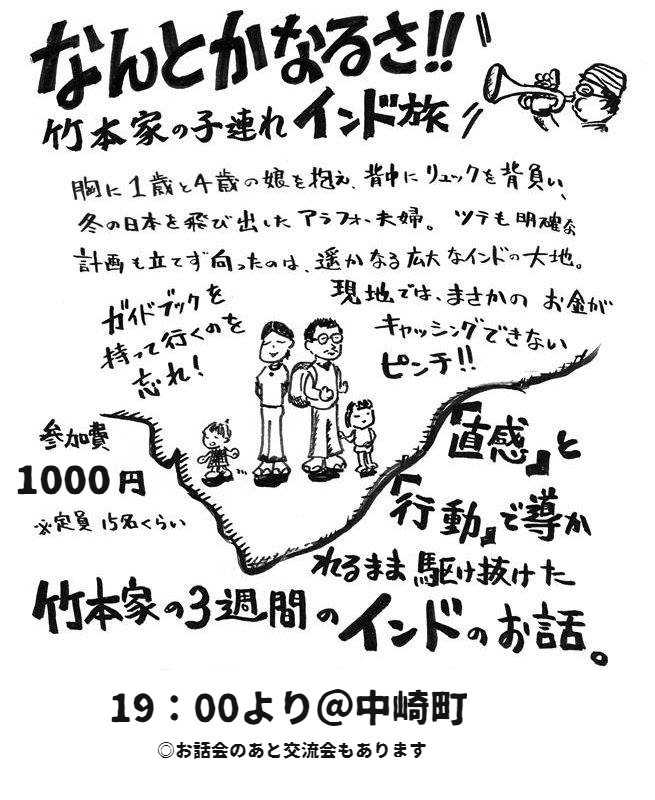 なんとかなるさ!!
竹本家の子連れインド旅
胸に1歳と4歳の娘を抱え、背中にリュックを背負い、
冬の日本を飛び出したアラフォー夫婦。ツテも明確な
計画も立てず向ったのは、遥かなる広大なインドの大地。
ガイドブックを
持って行くのを
忘れ!
現地では、まさかのお金が
キャッシングできない
ピンチ!!
参加費
1000円
※定員15名くらい
『直感』と
『行動』で導か
れるまま駆け抜けた
竹本家の3週間のインドのお話。
19：00より@中崎町
◎お話会のあと交流会もあります